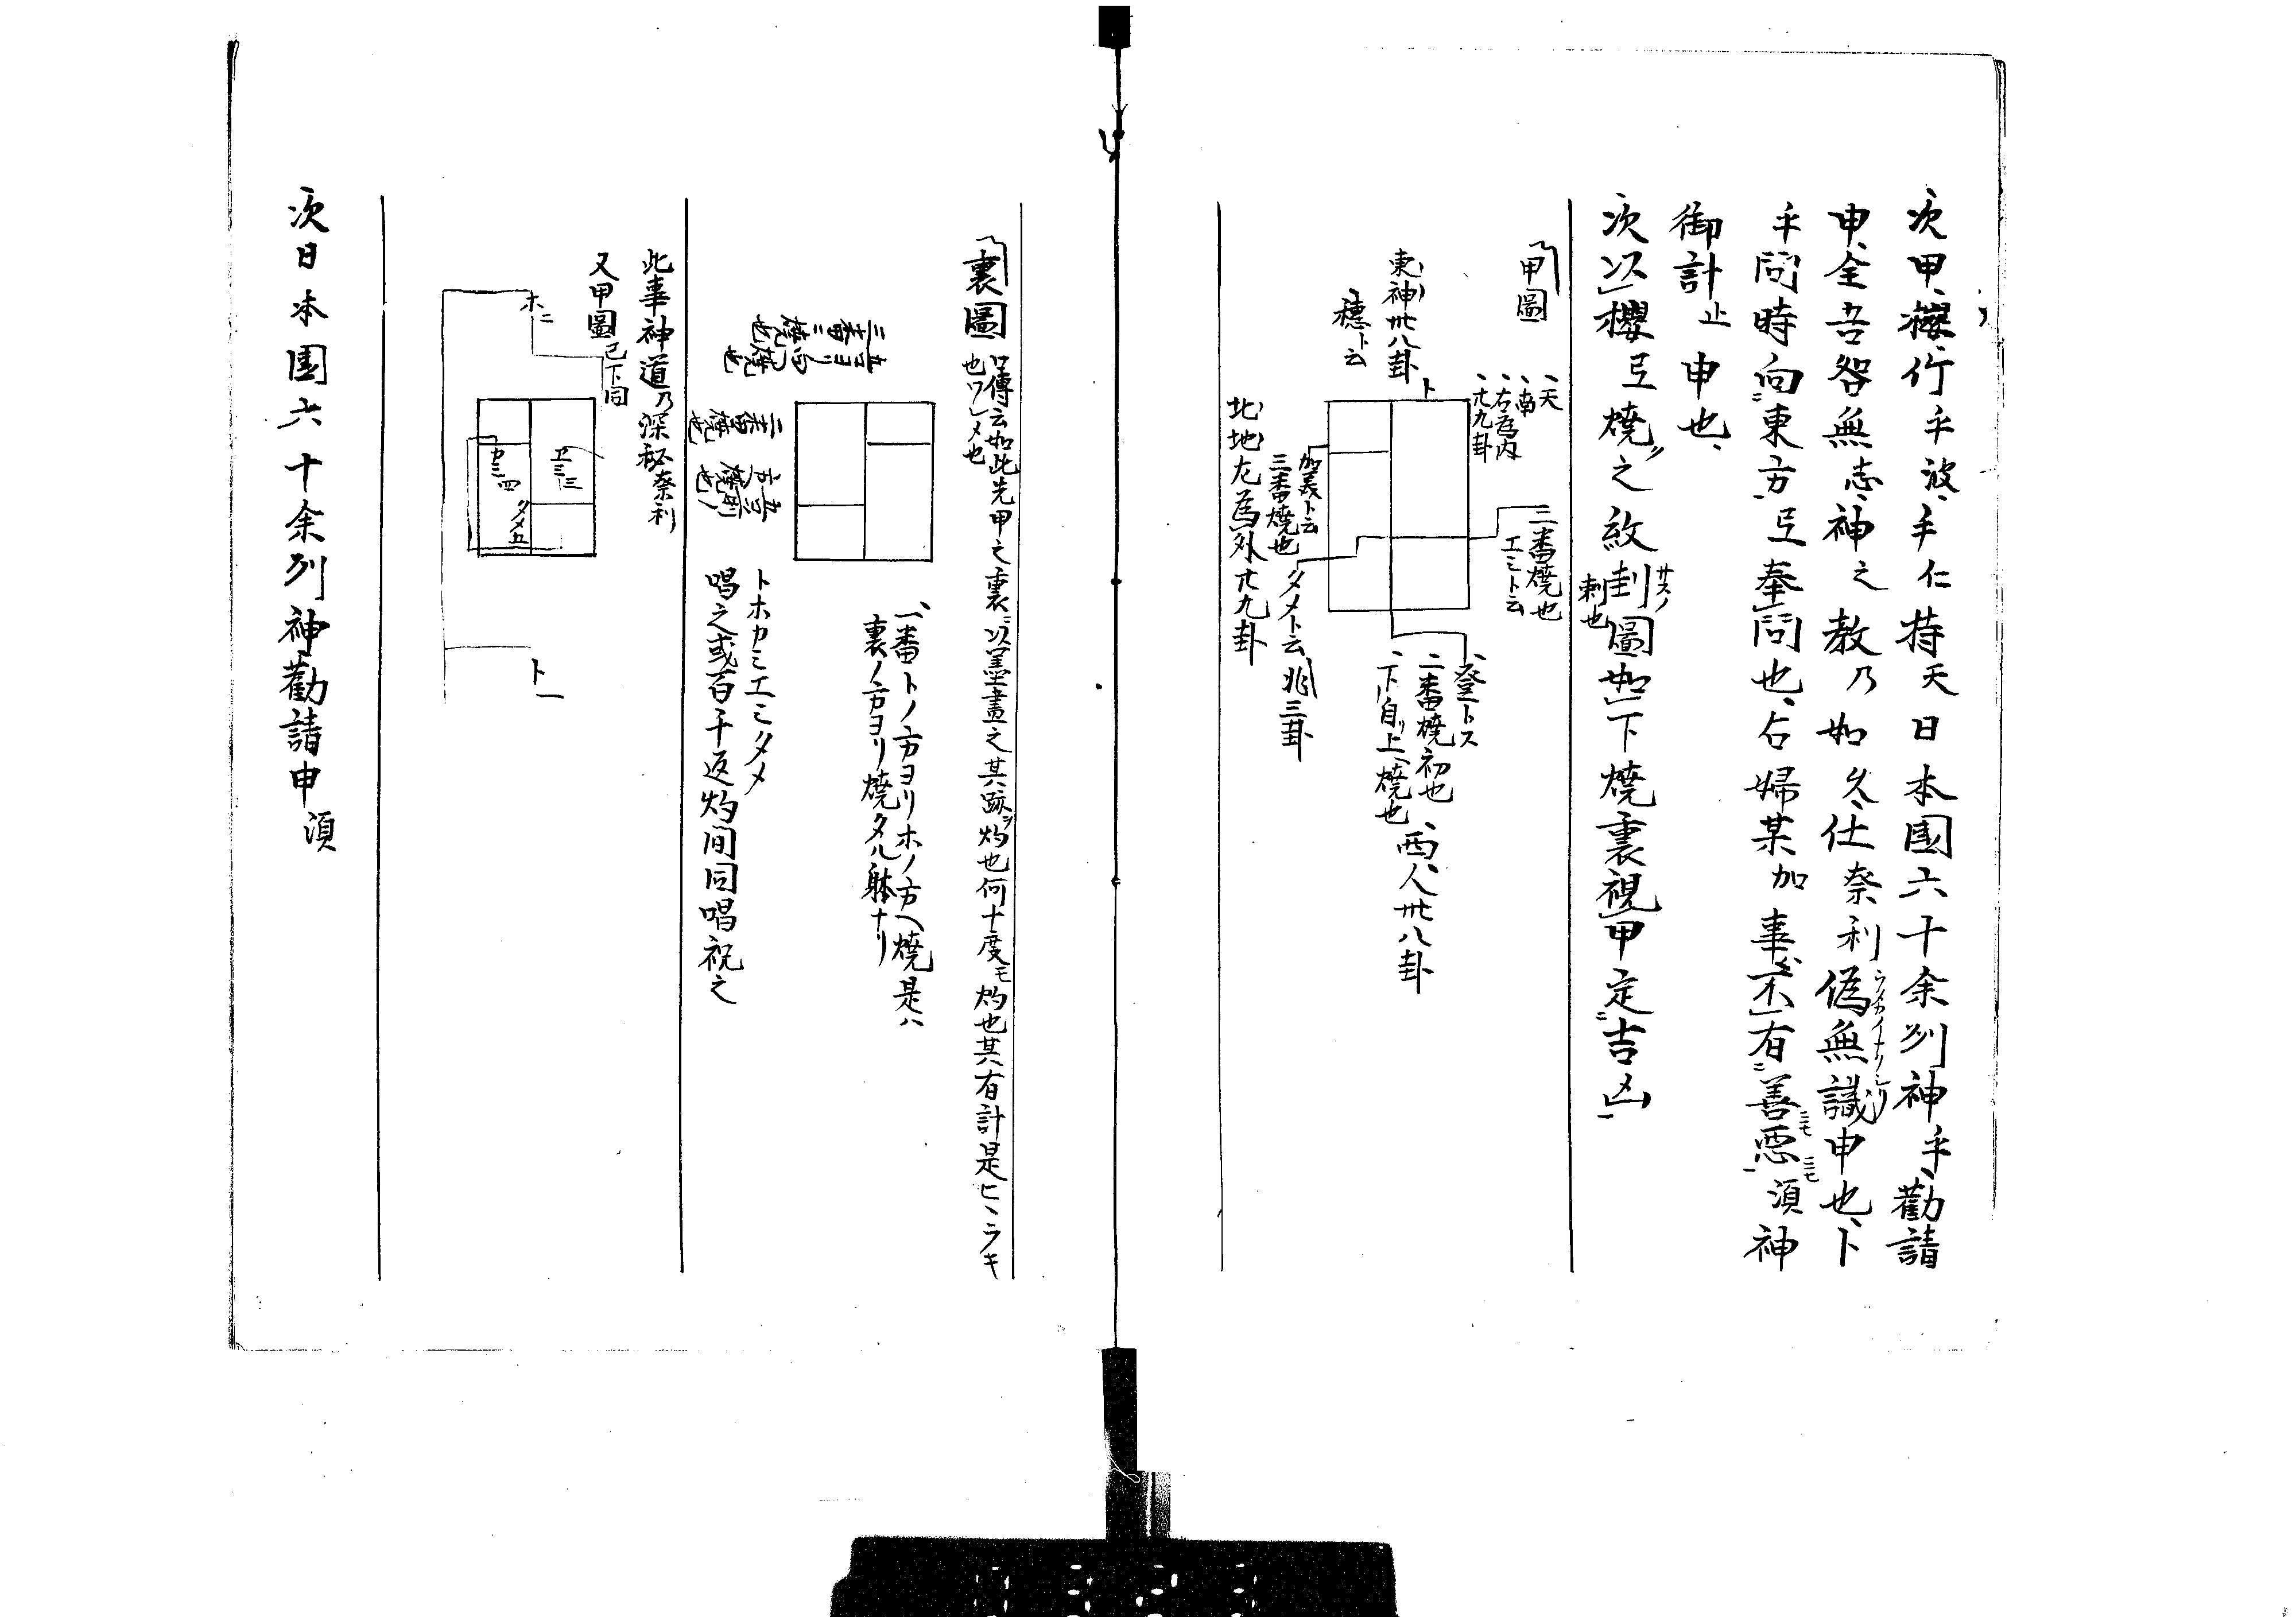 次甲櫻行乎波手仁持天日本國六十余州神乎勸請
申全吾咎無志神之教乃如久仕奈利偽無識申也卜
ウタカイナクシリ
乎問時向東方弖奉問也右婦某加事不有善悪須神
御計止申也
次以櫻弖燒之紋刲圖如下燒裏視甲定吉凶
サスノ
刺也
甲圖
天
南
右為内
廿九卦
東神卅八卦
穂ト云
ト
三番燒也
エミト云
加美ト云
三番燒也
タメト云
兆三卦
登トス
二番燒初也
下自上燒也
西人卅八卦
北地左為外廿九卦
裏圖
口傳云如此先甲之裏ニ以墨畫之其跡ヲ灼也何十度モ灼也其有計是ヒヽラキ
也ワレメ也
一番トノ方ヨリホノ方ヘ燒是ハ
裏ノ方ヨリ燒タル躰ナリ
二番燒也
トホカミエミタメ
唱之或百千返灼間同唱祝之
此事神道乃深秘奈利
又甲圖
已下同
ホニ
エミ三
カミ四
タメ五
ト一
次日本國六十余州神勸請申須